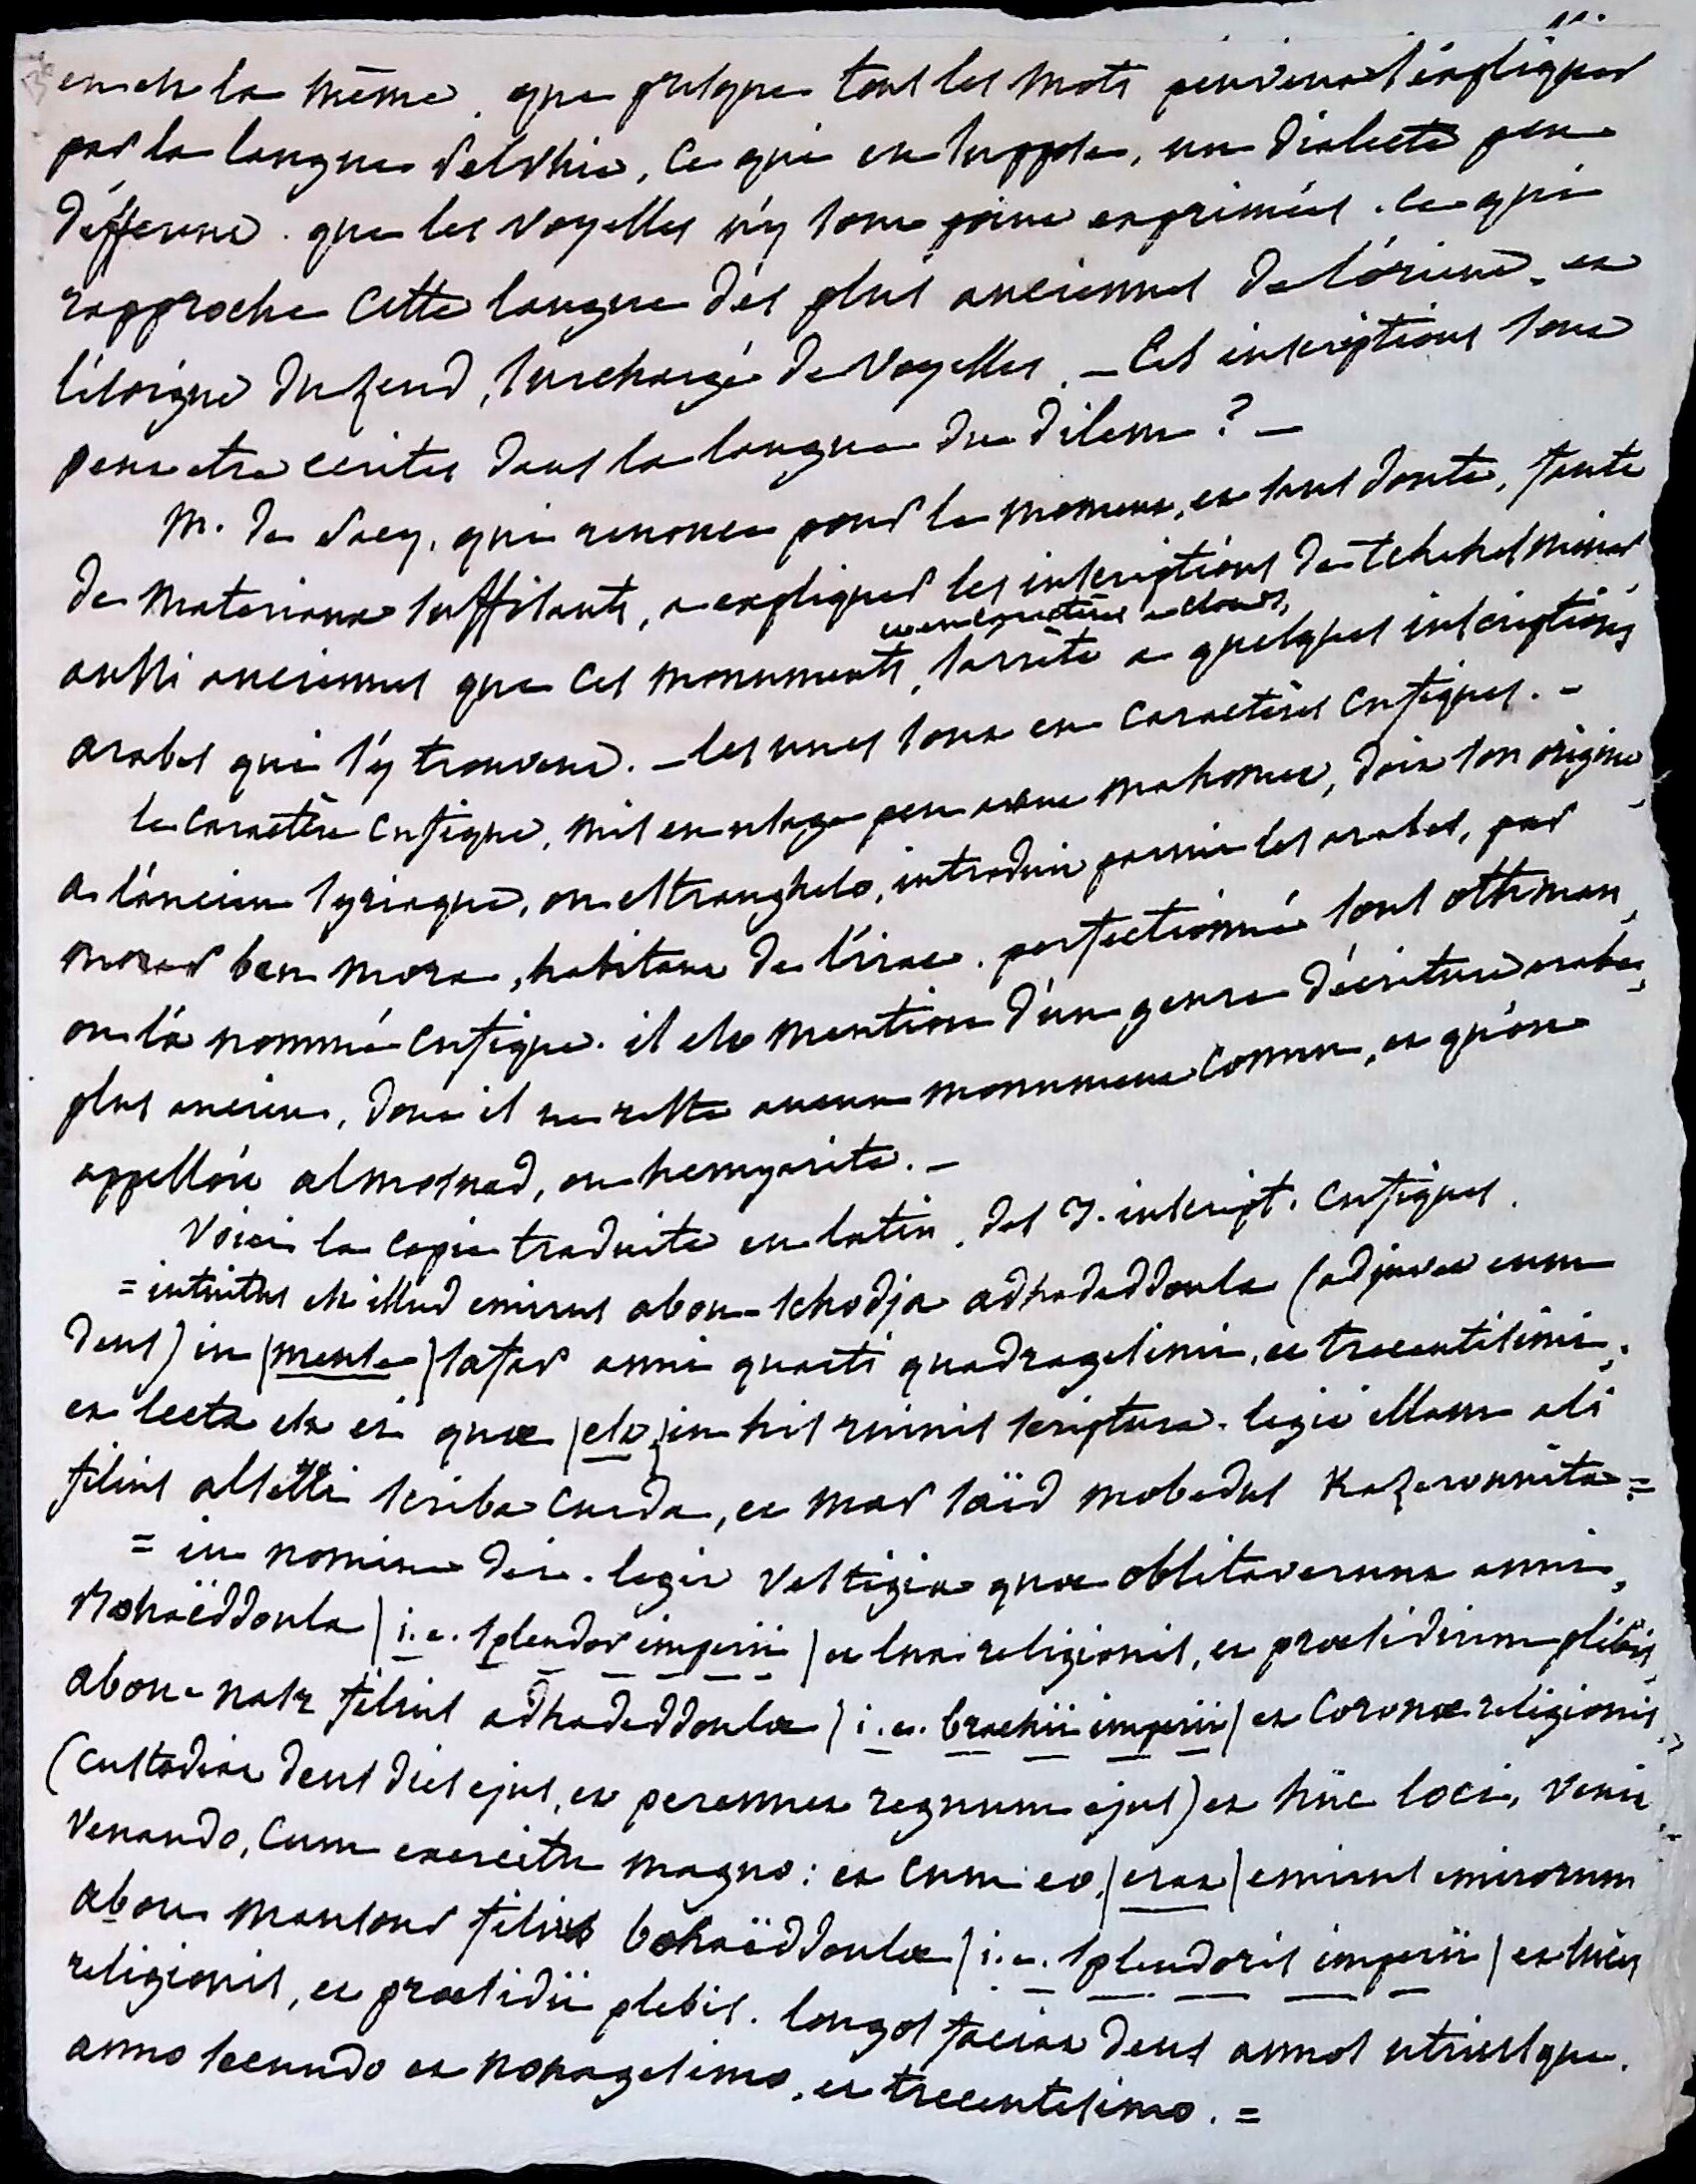 en est la même. que presque tous les mots peuvent s'expliquer
par la langue pelvhie, ce qui en suppose, un dialecte peu
différent. que les voyelles n'y sont point exprimées. ce qui
rapproche cette langue des plus anciennes de l'orient, et
l'éloigne du zend, surchargé de voyelles. — Ces inscriptions sont
peut etre ecrites dans la langue du dilem ? —
M. de Sacy, qui renonce pour le moment, et sans doute, faute
de materiaux suffisants, a expliquer les inscriptions de tchehelminar
et en caractères a clous,
aussi anciennes que ces monuments, s'arrête a quelques inscriptions
arabes qui s'y trouvent. — les unes sont en caractères cufiques. —
le caractère cufique, mis en usage peu avant mahomet, doit son origine
a l'ancien syriaque, ou estranghelo, introduit parmi les arabes, par
morar ben mora, habitant de l'irac. perfectionné sous othman,
on l'a nommé cufique. il est mention d'un genre d'écriture arabe,
plus ancien, dont il ne reste aucun monument connu, et qu'on
appelloit almosnad, ou hemyarite. —
Voici la copie traduite en latin, des 3. inscript. cufiques.
= intuitus est illud emirus abou-schodja adhadeddoula (adjuvet eum
deus) in (mense) safar anni quarti quadragesimi, et trecentesimi;
et lecta est ei quæ (est) in his ruinis scriptura. legit illam ali
filius alserri scriba curda, et mar saïd mobedus Kazerounita =
= in nomine dei. legit vestigia quæ oblitaverunt anni,
Bohaëddoula (i.e. splendor imperii) et lux religionis, et præsidium plebis,
abou-nasr filius adhadeddoulæ (i.e. brachii imperii) et coronæ religionis,
(custodiat deus dies ejus, et perennet regnum ejus) et huc loci, venit
venando, cum exercitu magno: et cum eo (erat) emirus emirorum
abou mansour filius bohaëddoulæ (i.e. splendoris imperii) et lucis
religionis, et præsidii plebis. longos faciat deus annos utriusque.
anno secundo et nonagesimo, et trecentesimo. =